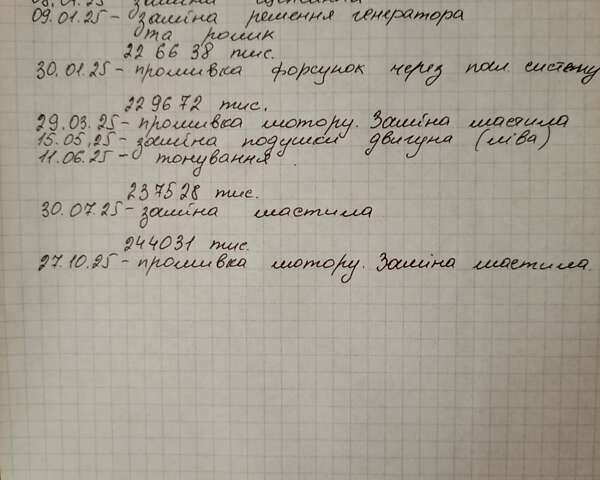 09.01.25 - заміна решення генератора
та ролик
226638 тис.
30.01.25 - промивка форсунок через пал. систему
229672 тис.
29.03.25 - промивка мотору. Заміна мастила
15.05.25 - заміна подушки двигуна (ліва)
11.06.25 - тонування.
237528 тис.
30.07.25 - заміна мастила
244031 тис.
27.10.25 - промивка мотору. Заміна мастила.